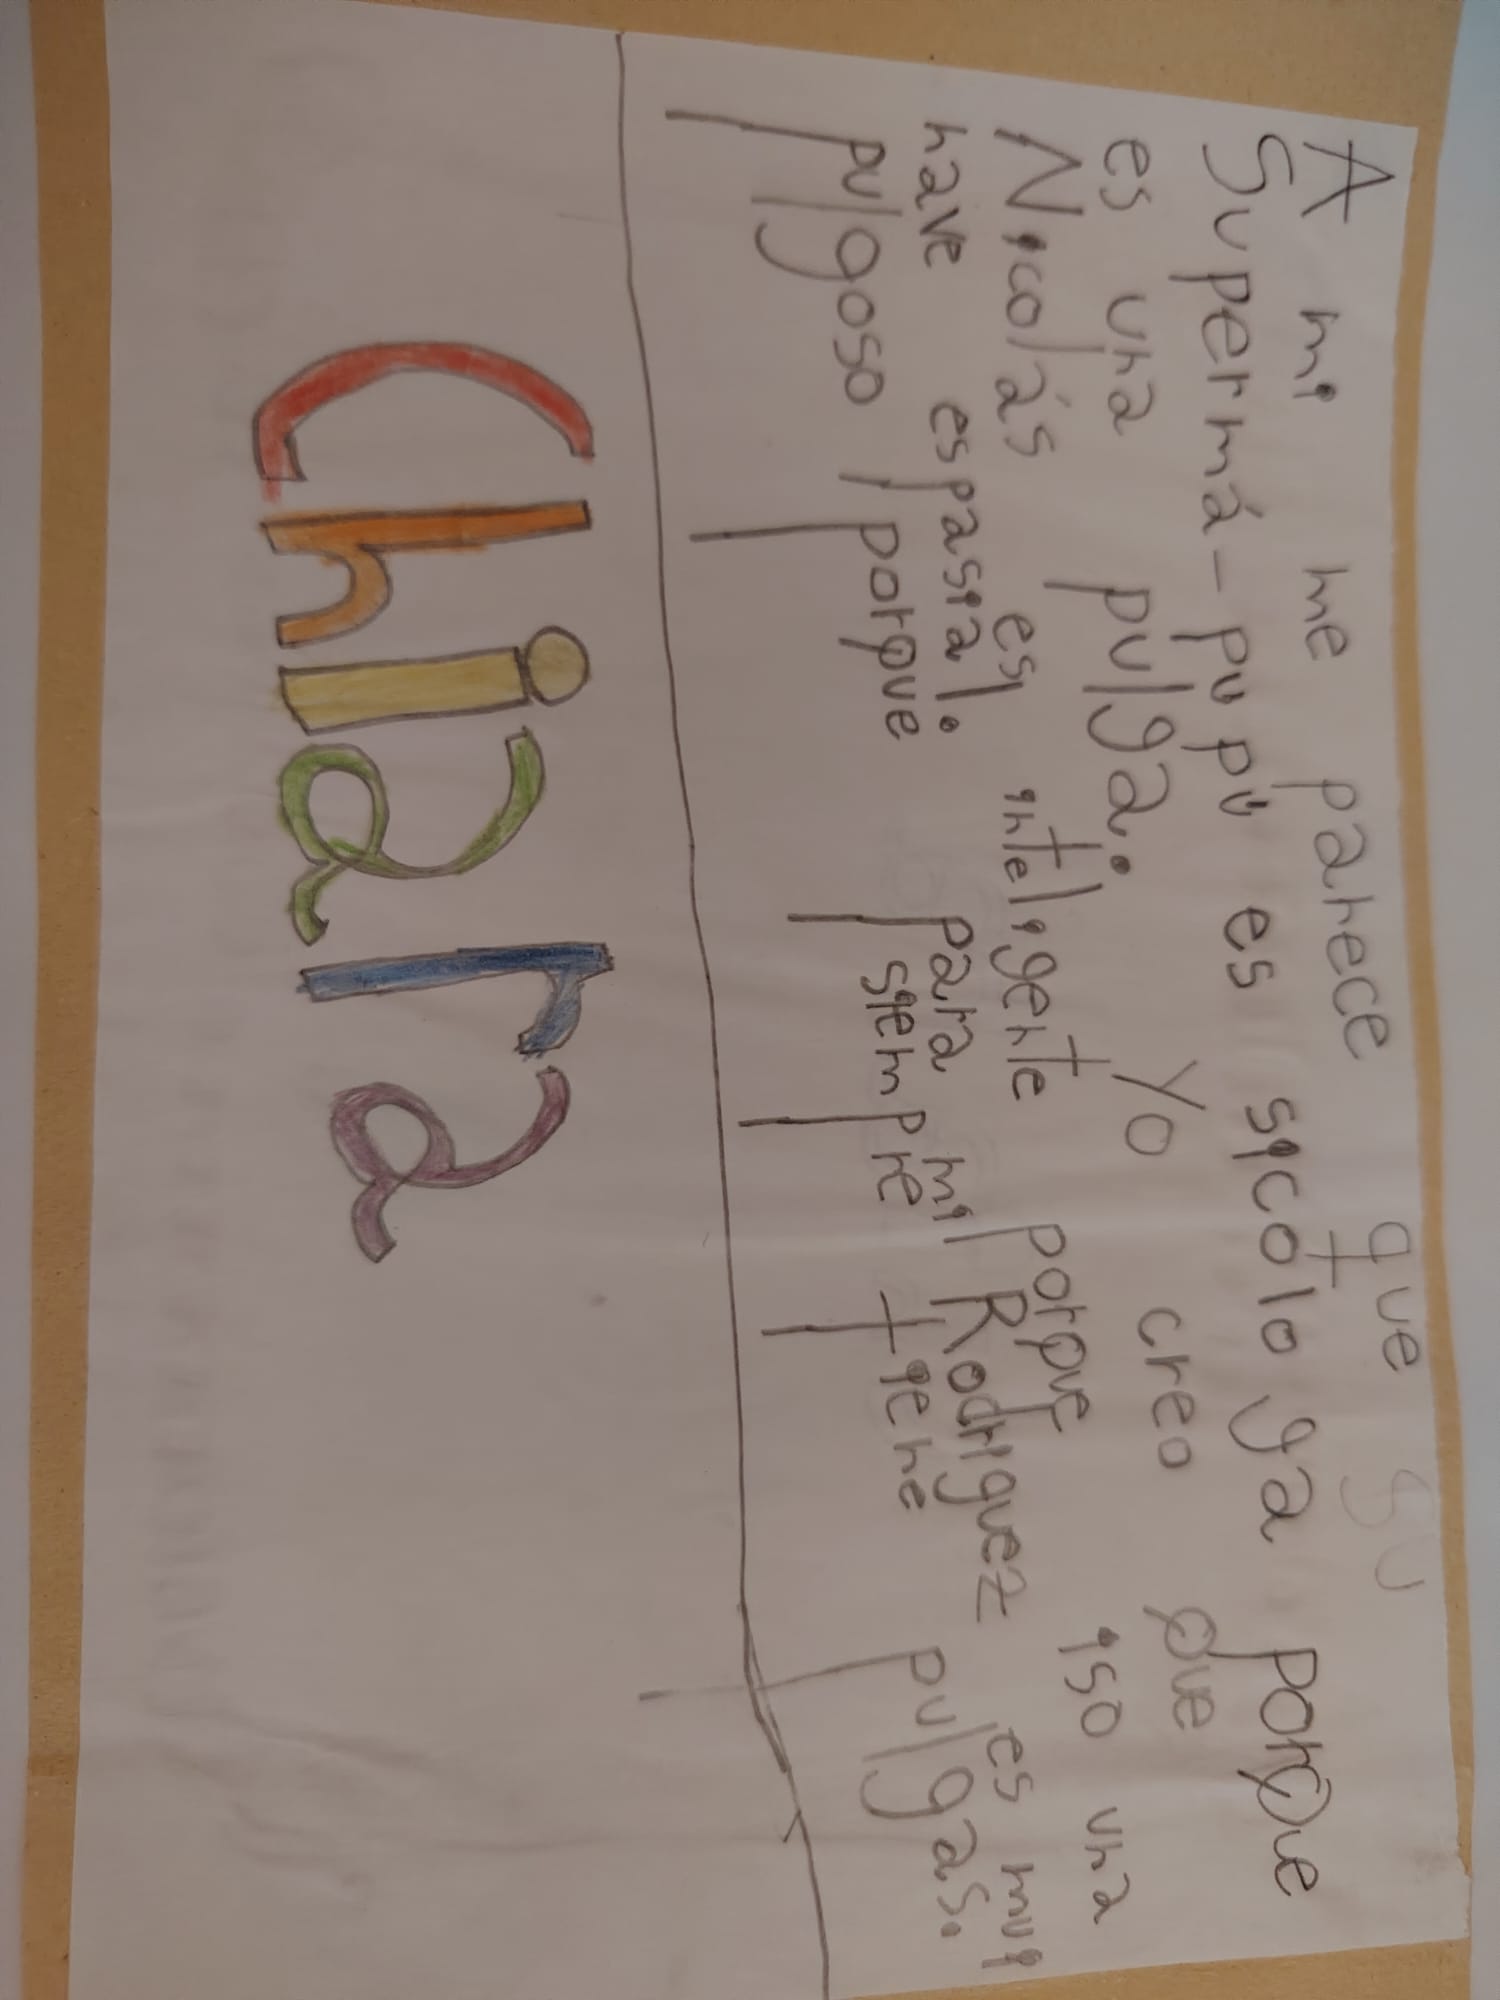 A mi me parece que su
Supermá-pupú es sicóloga porque
es una pulga. Yo creo que
Nicolás es inteligente porque iso una
nave espasial. para mi Rodriguez es mui
pulgoso porque siempre tiene pulgas.
Chiara